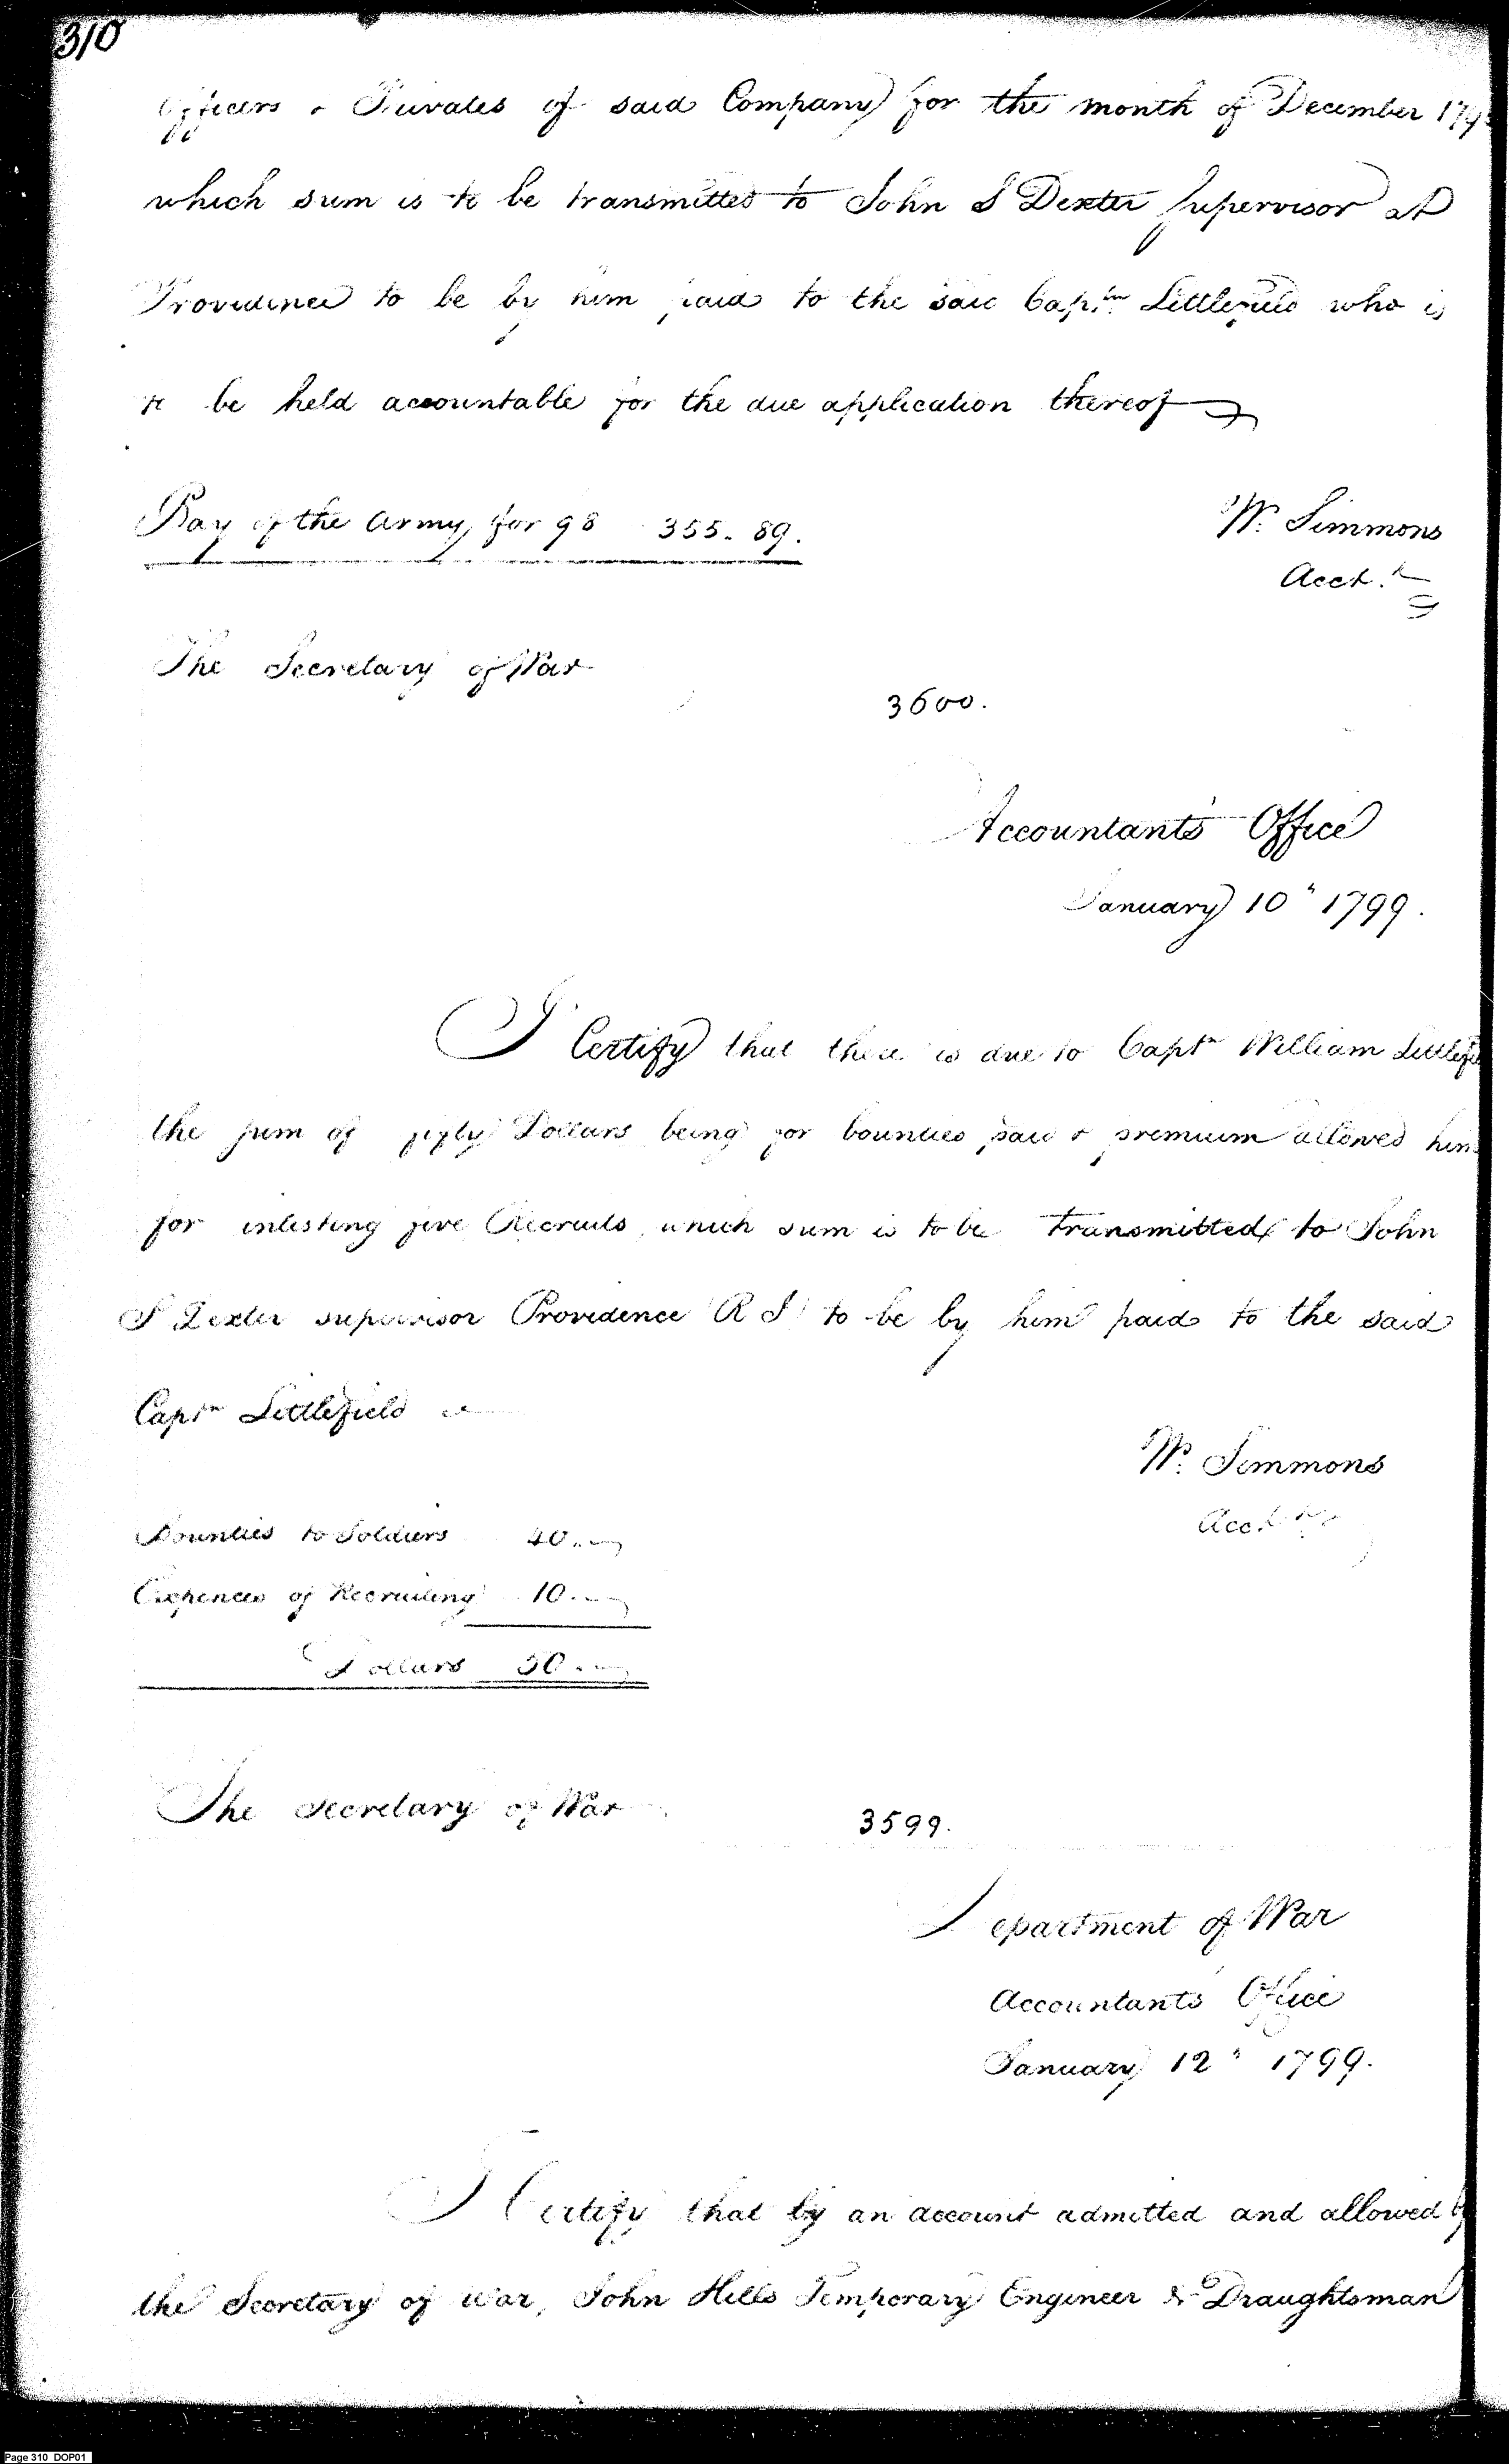 310
Officers & Privates of said Company for the month of December 179
which sum is to be transmitted to John S Dexter Supervisor at
Providence to be by him paid to the said Captn Littlefield who is
to be held accountable for the due application thereof
Pay of the Army, for 98 355. 89.
W. Simmons
Acct.
The Secretary of War
3600.
Accountants Office
January 10" 1799.
I Certify that there is due to Captn William Littlefie
the sum of Dollars being for bounties paid & premium allowed him
for inlisting five Recruits, which sum is to be transmitted to John
S Dexter supervisor Providence R I to be by him paid to the said
Captn Littlefield
W. Simmons
Acct.
Bounties to Soldiers 40..
Expences of Recruiting 10..
Dollars 50..
The Secretary of War
3599.
Department of War
Accountants Office
January 12" 1799.
I Certify that by an account admitted and allowed by
the Secretary of War, John Hills Temporary Engineer & Draughtsman
Page 310 DOP01